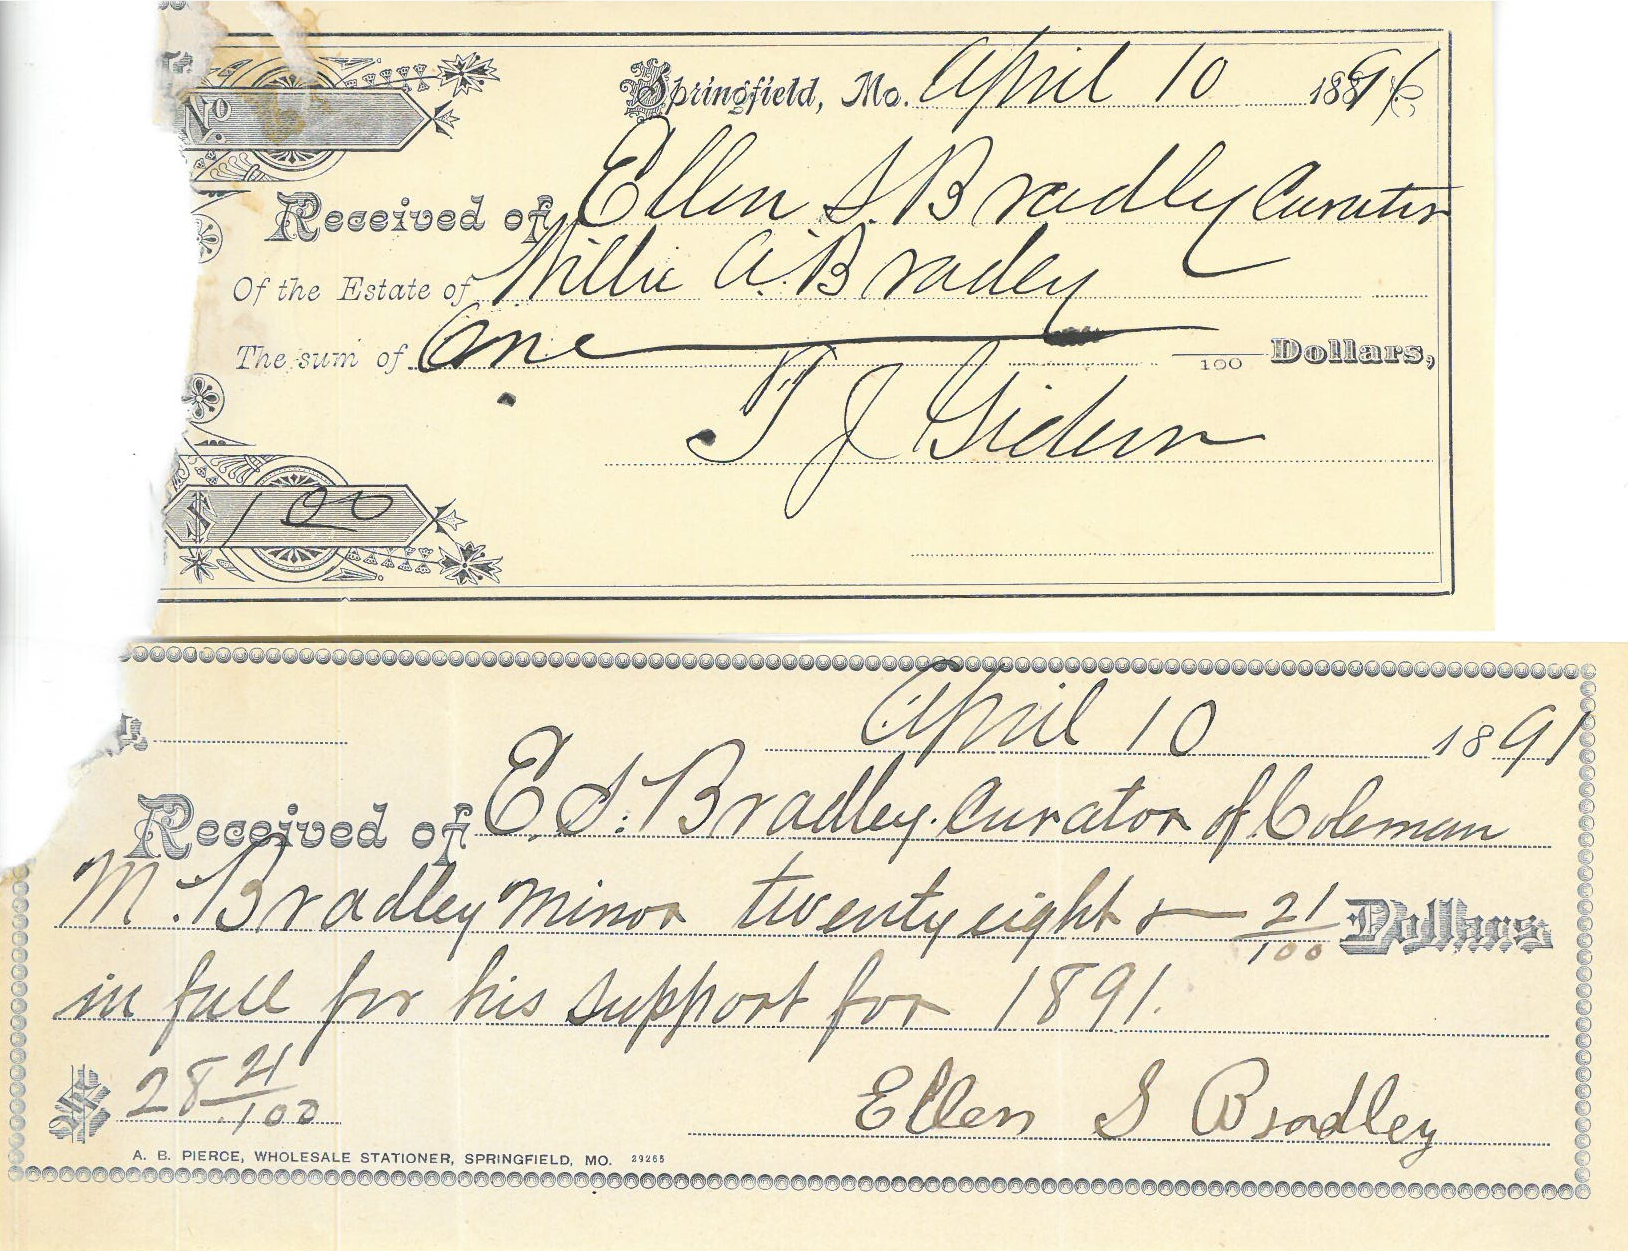 No
Springfield, Mo. April 10 1891
Received of Ellen S. Bradley Curator
Of the Estate of Willie A. Bradley
The sum of One /100 Dollars,
T J Gideon
$ 1 00
April 10 1891
Received of E. S. Bradley. Curator of Coleman
M. Bradley Minor twenty eight & 21/100 Dollars
in full for his support for 1891.
$ 28 21/100
Ellen S Bradley
A. B. PIERCE, WHOLESALE STATIONER, SPRINGFIELD, MO. 29265